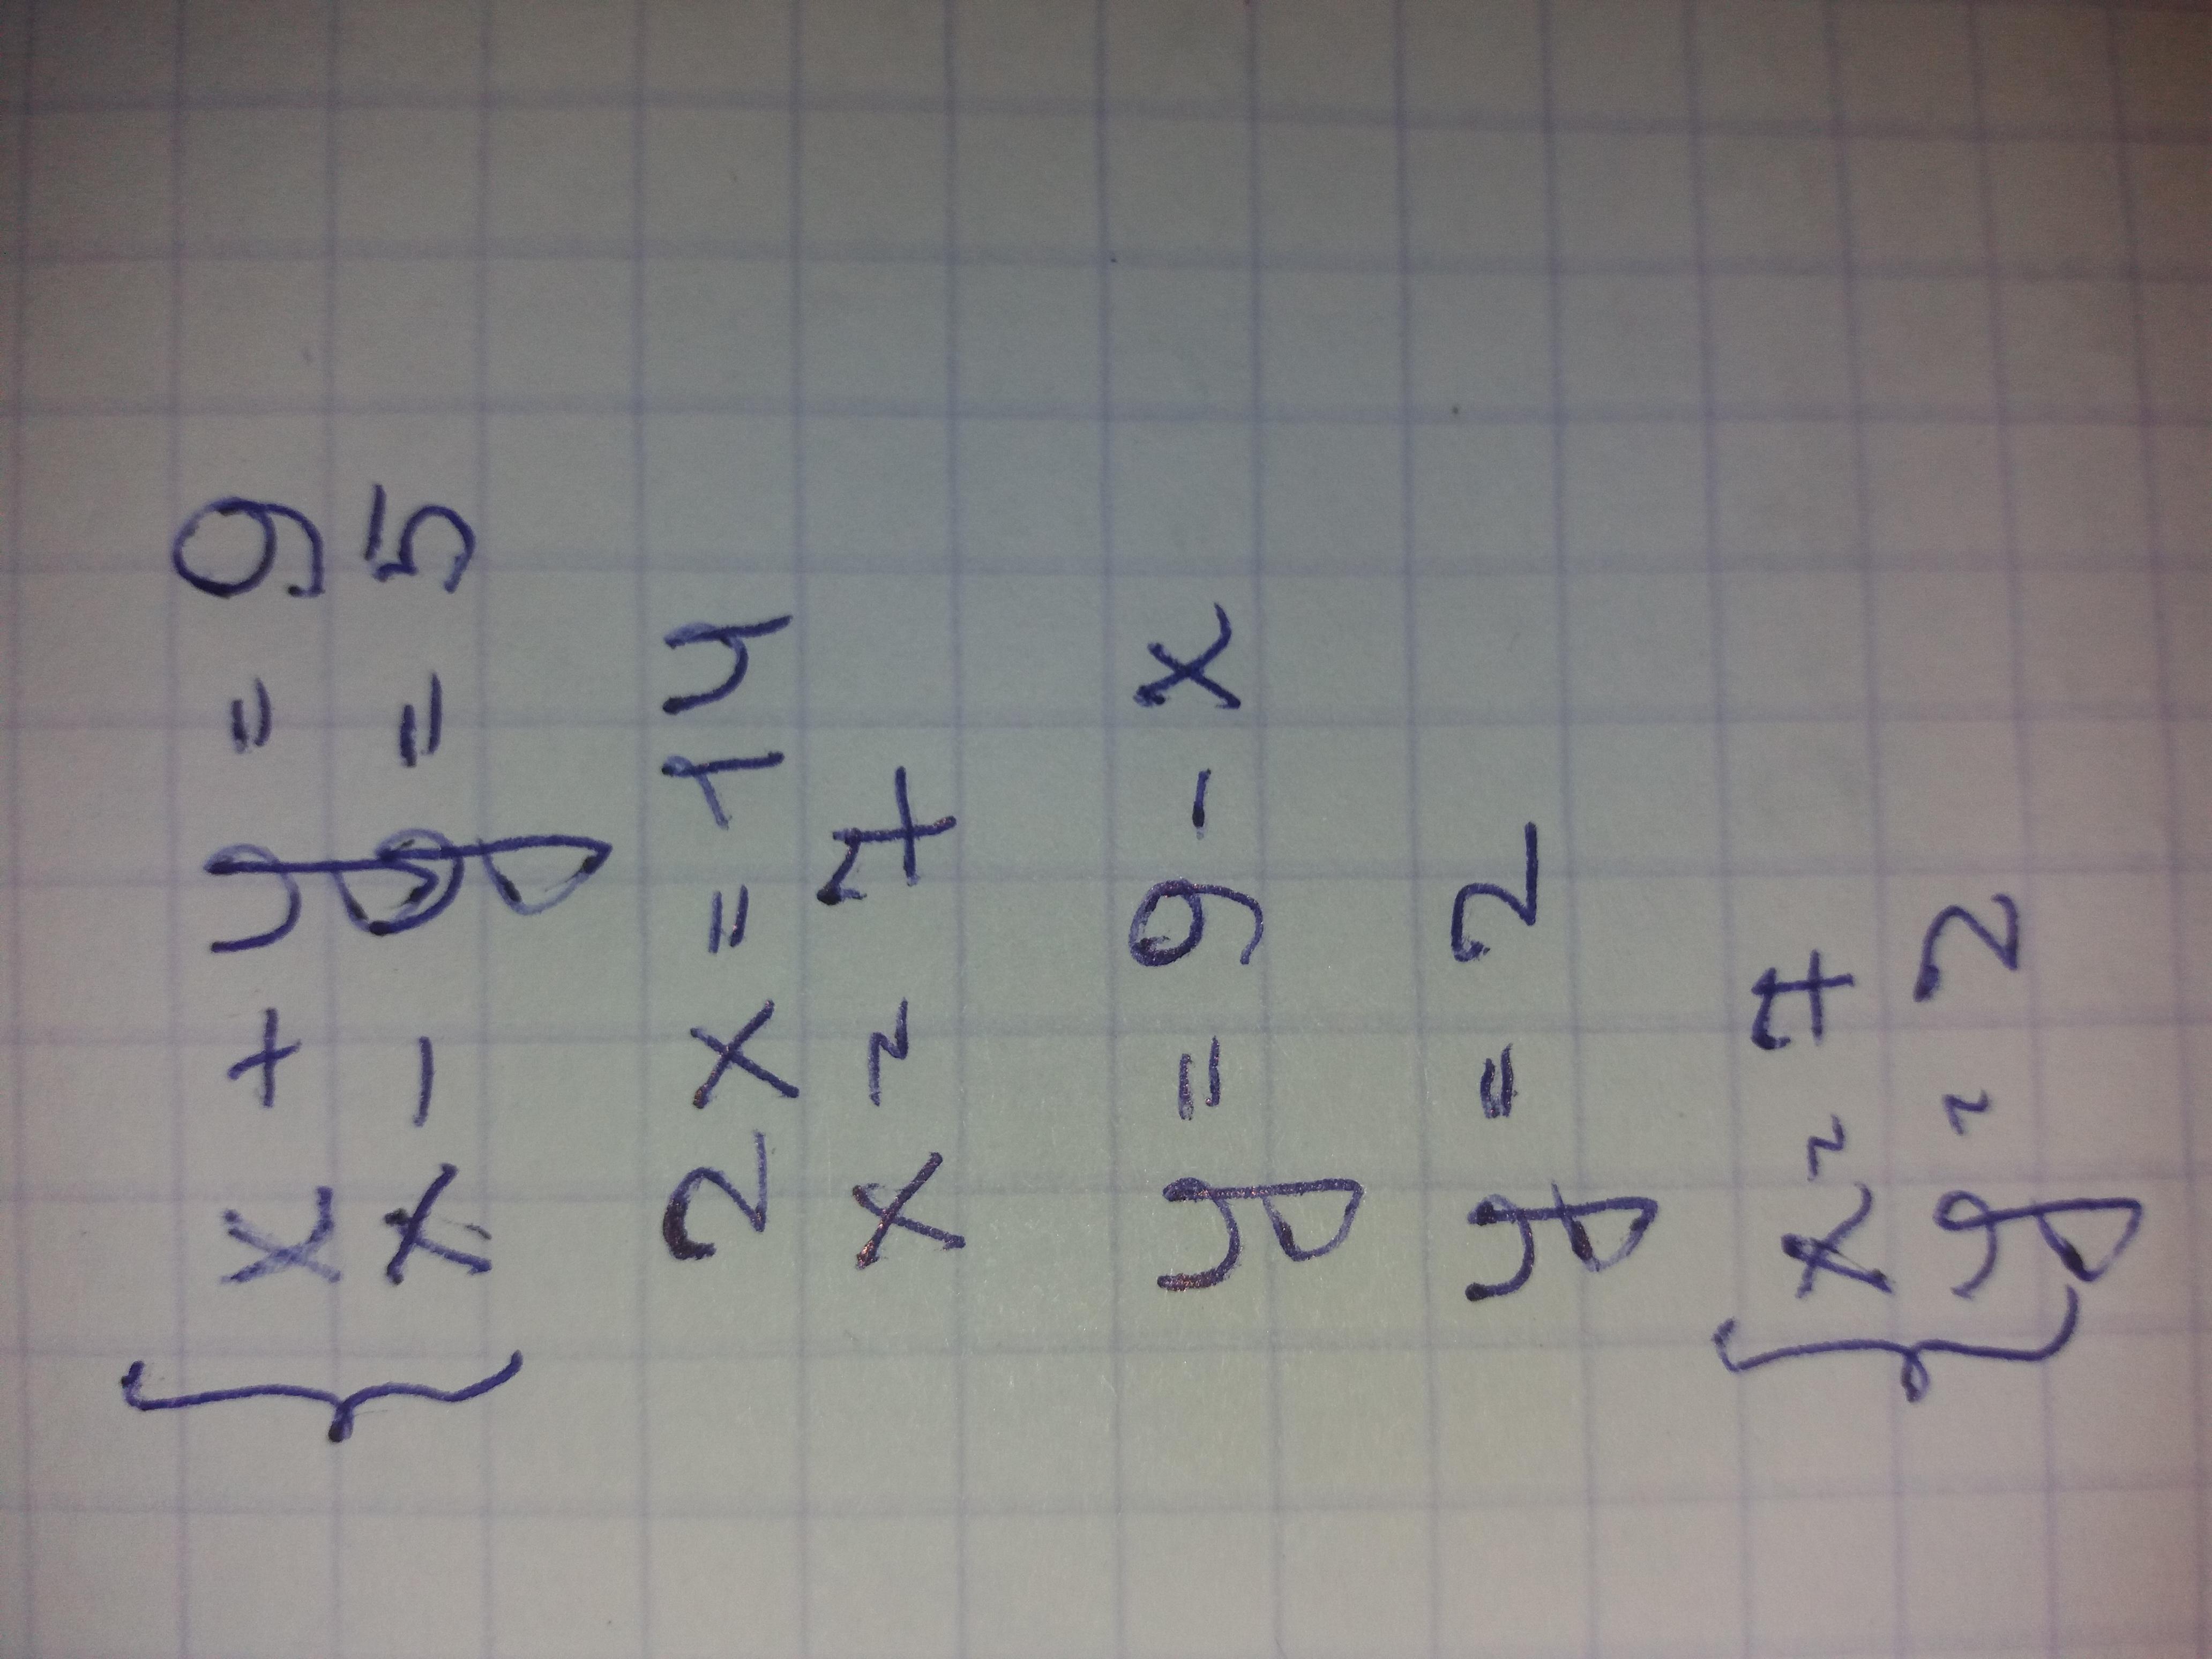 x + y = 9
x - y = 5
2x = 14
x = 7
y = 9 - x
y = 2
x = 7
y = 2